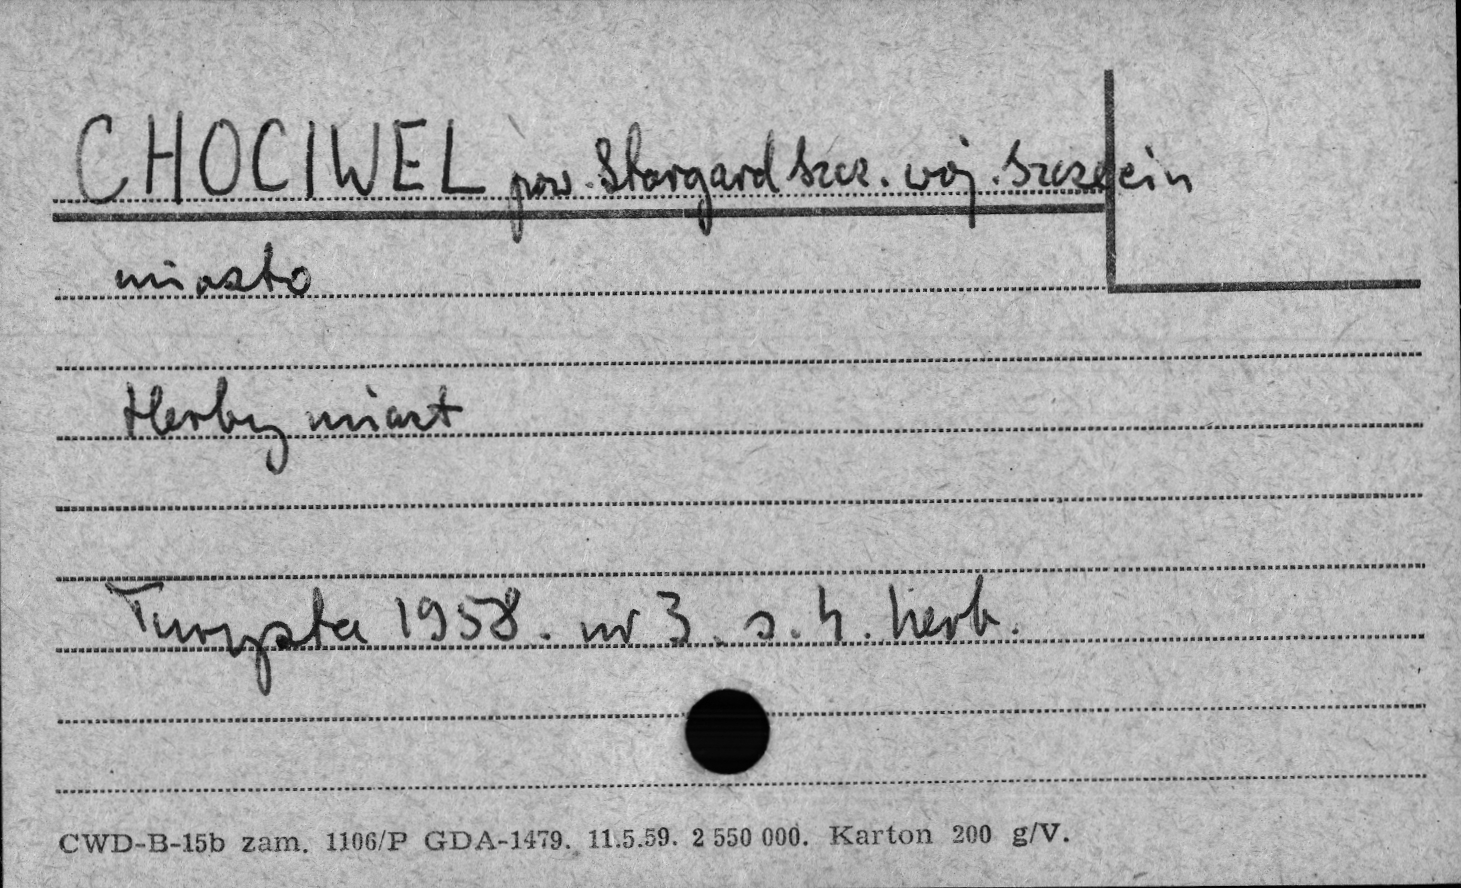 CHOCIWEL pow. Stargard Szcz. woj. Szczecin
miasto
Herby miast
Turysta 1958. nr 3. s. 4. herb.
CWD-B-15b zam. 1106/P GDA-1479. 11.5.59. 2 550 000. Karton 200 g/V.